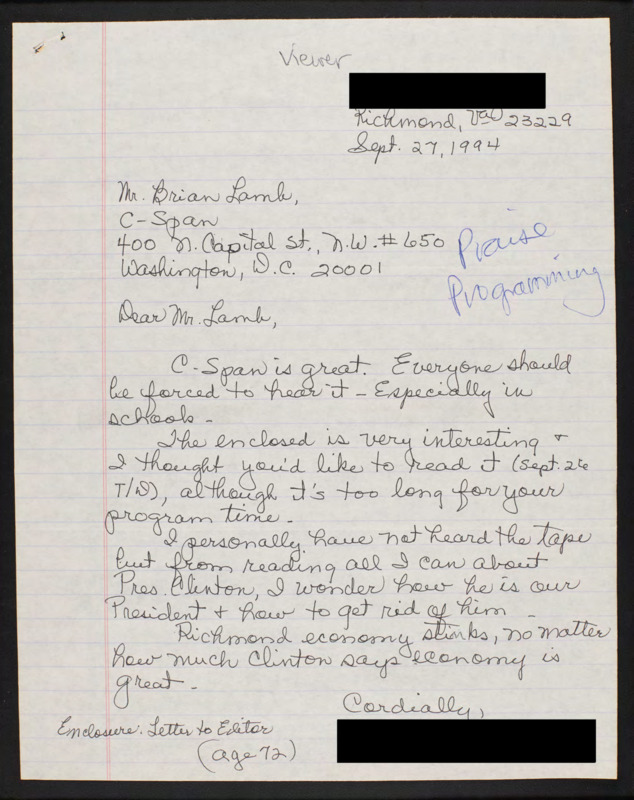 Viewer
Richmond, Va 23229
Sept. 27, 1994
Mr. Brian Lamb,
C-Span
400 N. Capital St., N.W. # 650
Washington, D.C. 20001
Praise
Programming
Dear Mr. Lamb,
C-Span is great. Everyone should
be forced to hear it - Especially in
schools -
The enclosed is very interesting +
I thought you'd like to read it (Sept. 26
T/D), although it's too long for your
program time -
I personally have not heard the tape
but from reading all I can about
Pres. Clinton, I wonder how he is our
President + how to get rid of him -
Richmond economy stinks, no matter
how much Clinton says economy is
great -
Cordially,
Enclosure: Letter to Editor
(age 72)